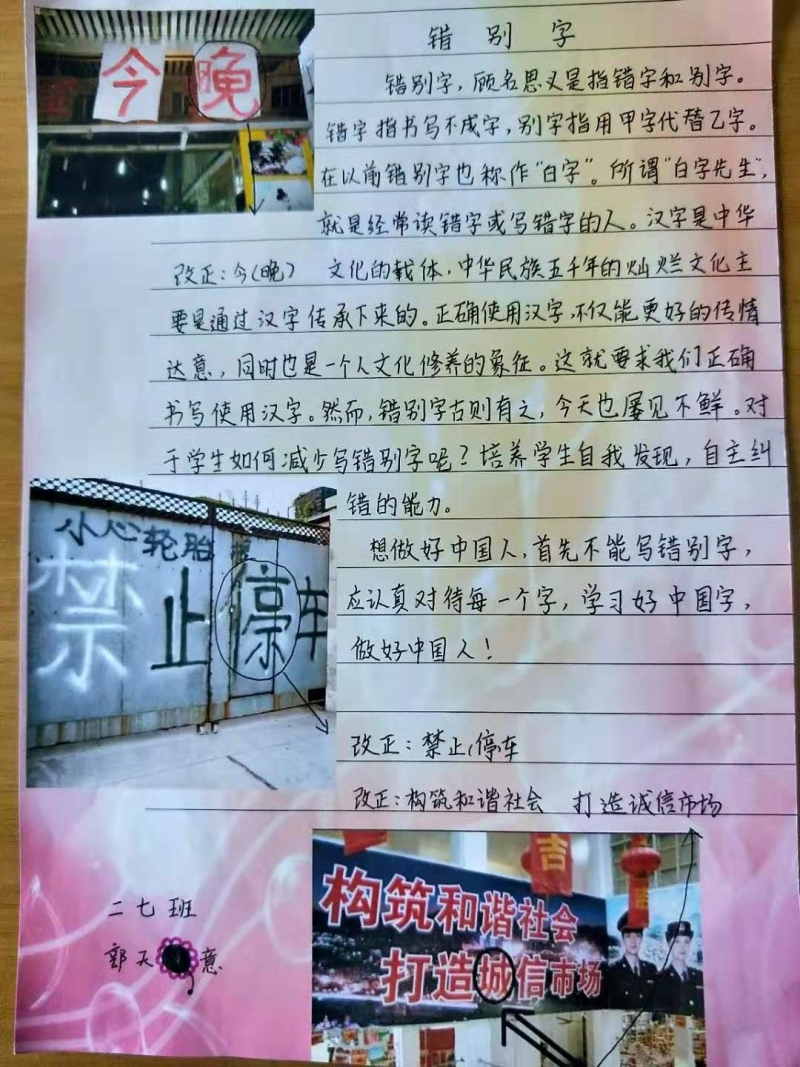 今晚
错别字
错别字，顾名思义是指错字和别字。
错字指书写不成字，别字指用甲字代替乙字。
在以前错别字也称作“白字”。所谓“白字先生”，
就是经常读错字或写错字的人。汉字是中华
改正：今（晚） 文化的载体，中华民族五千年的灿烂文化主
要是通过汉字传承下来的。正确使用汉字，不仅能更好的传情
达意，同时也是一个人文化修养的象征。这就要求我们正确
书写使用汉字。然而，错别字古则有之，今天也屡见不鲜。对
于学生如何减少写错别字呢？培养学生自我发现，自主纠
错的能力。
小心轮胎
禁止停车
想做好中国人，首先不能写错别字，
应认真对待每一个字，学习好中国字，
做好中国人！
改正：禁止停车
改正：构筑和谐社会 打造诚信市场
吉
构筑和谐社会
打造诚信市场
二七班
郭天意